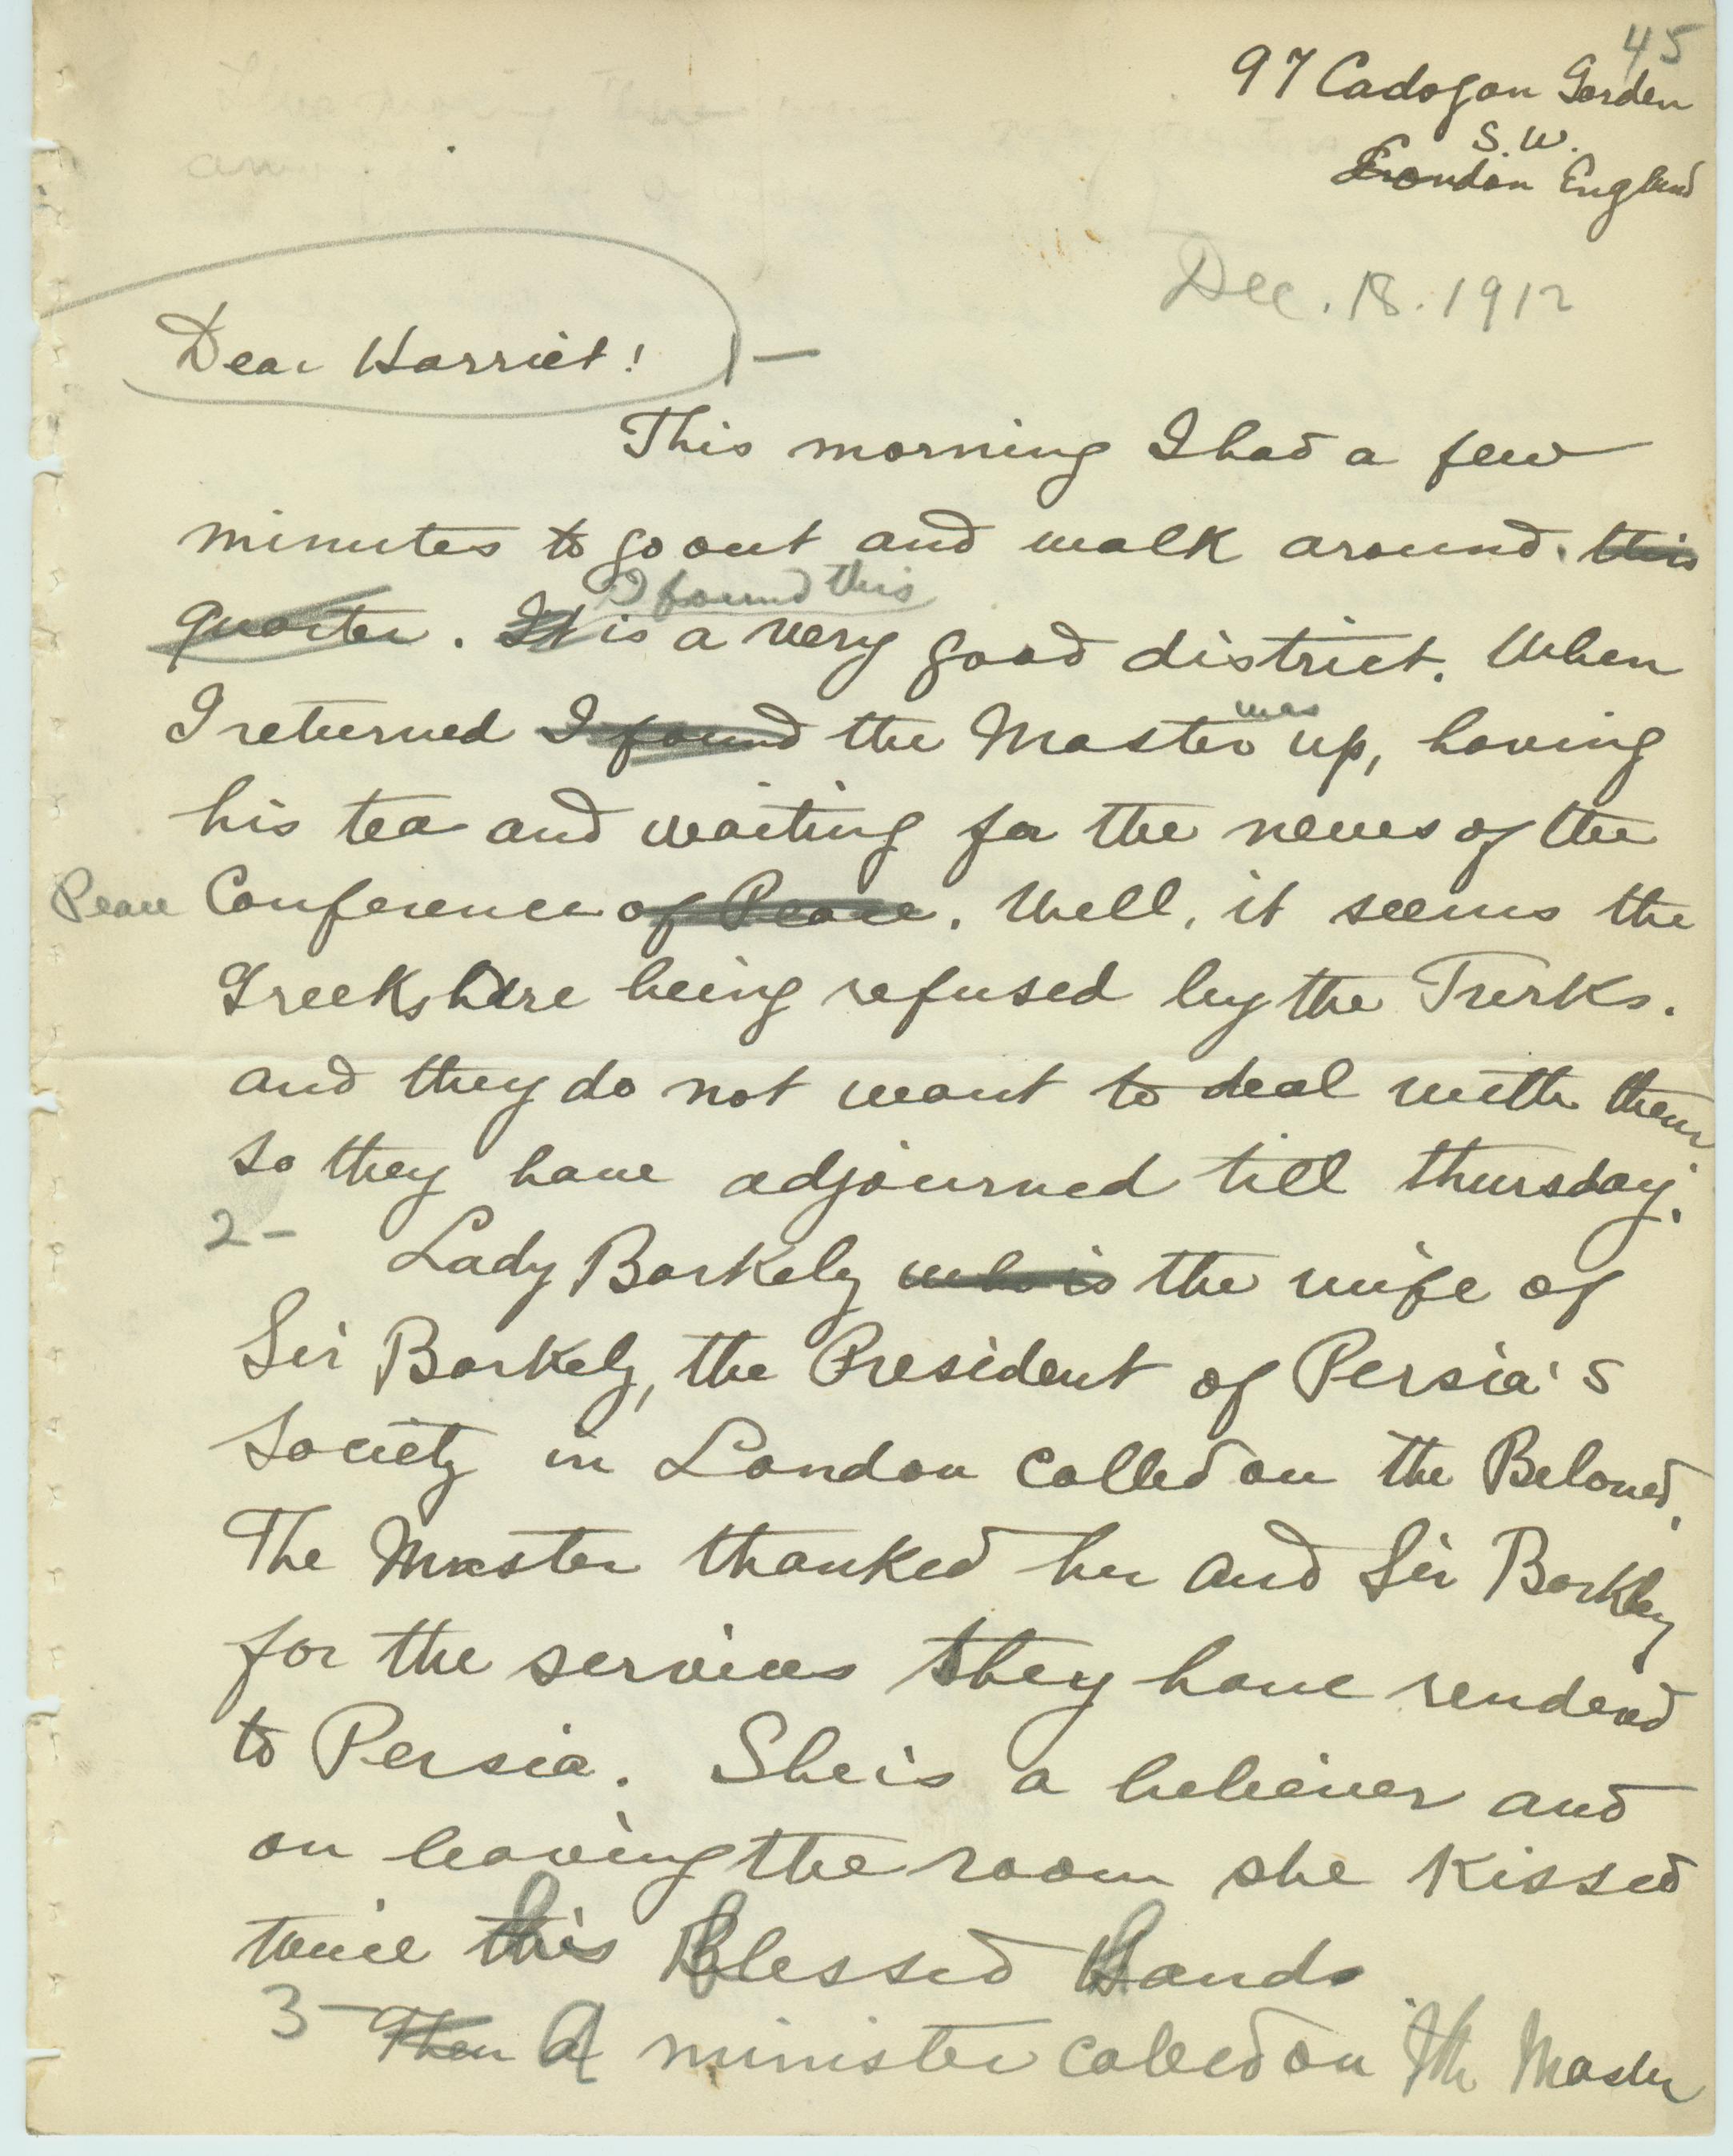 45
97 Cadogan Gorden
S.W.
London England
Dec. 18. 1912
Dear Harriet! 1—
This morning I had a few
minutes to go out and walk around. this
I found this
quarter. It is a very good district. When
I returned I found the Master was up, having
his tea and waiting for the news of the
Peace Conference of Peace. Well, it seems the
Greeks are being refused by the Turks.
and they do not want to deal with them
so they have adjourned till thursday.
2- Lady Barkely who is the wife of
Sir Barkely, the President of Persia's
Society in London called on the Beloved.
The Master thanked her and Sir Barkley
for the services they have renderd
to Persia. She is a believer and
on leaving the room she kissed
twice his Blessed hands.
3- Then A minister called on the Master